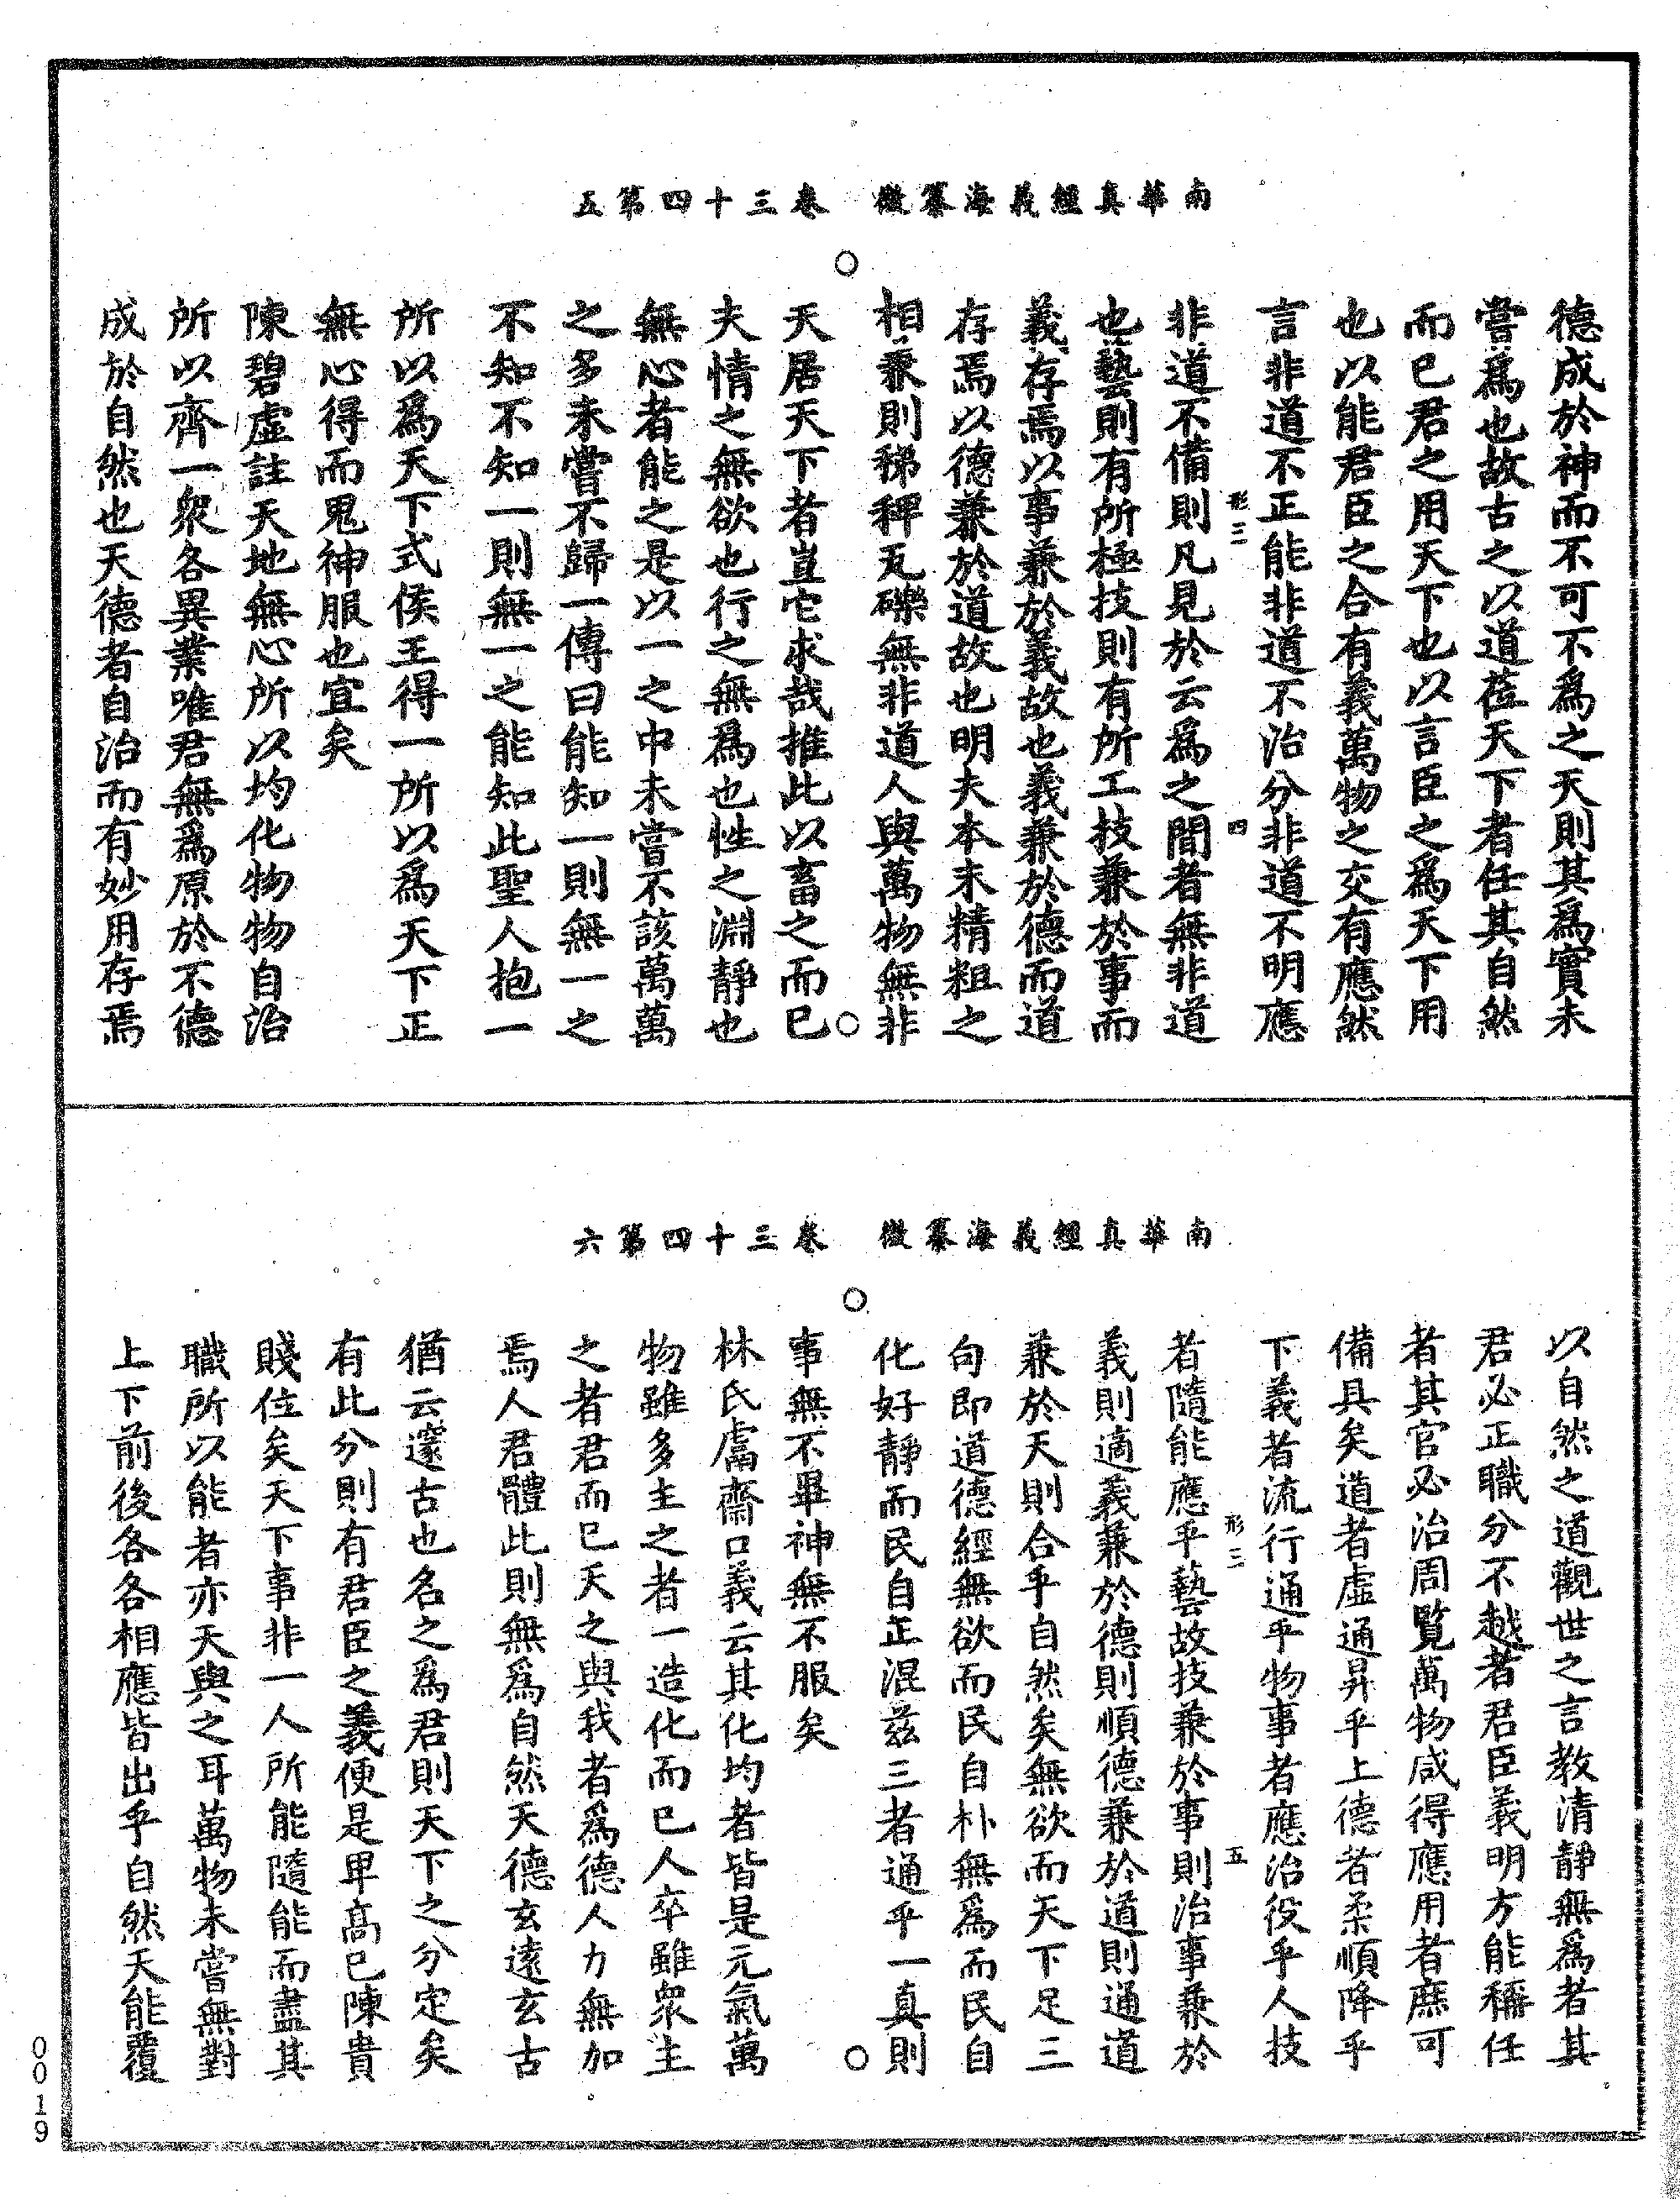 南華真經義海纂微　卷三十四第五
德成於神而不可不爲之天則其爲實未
嘗爲也故古之以道莅天下者任其自然
而已君之用天下也以言臣之爲天下用
也以能君臣之合有義萬物之交有應然
言非道不正能非道不治分非道不明應
形三　四
非道不備則凡見於云爲之間者無非道
也藝則有所極技則有所工技兼於事而
義存焉以事兼於義故也義兼於德而道
存焉以德兼於道故也明夫本末精粗之
相兼則稊稗瓦礫無非道人與萬物無非
天居天下者豈它求哉推此以畜之而已
夫情之無欲也行之無爲也性之淵靜也
無心者能之是以一之中未嘗不該萬萬
之多未嘗不歸一傳曰能知一則無一之
不知不知一則無一之能知此聖人抱一
所以爲天下式侯王得一所以爲天下正
無心得而鬼神服也宜矣
陳碧虛註天地無心所以均化物物自治
所以齊一衆各異業唯君無爲原於不德
成於自然也天德者自治而有妙用存焉
南華真經義海纂微　卷三十四第六
以自然之道觀世之言教清靜無爲者其
君必正職分不越者君臣義明方能稱任
者其官必治周覽萬物咸得應用者庶可
備具矣道者虛通昇乎上德者柔順降乎
下義者流行通乎物事者應治役乎人技
形三　五
者隨能應乎藝故技兼於事則治事兼於
義則適義兼於德則順德兼於道則通道
兼於天則合乎自然矣無欲而天下足三
句即道德經無欲而民自朴無爲而民自
化好靜而民自正混茲三者通乎一真則
事無不畢神無不服矣
林氏鬳齋口義云其化均者皆是元氣萬
物雖多主之者一造化而已人卒雖衆主
之者君而已天之與我者爲德人力無加
焉人君體此則無爲自然天德玄遠玄古
猶云邃古也名之爲君則天下之分定矣
有此分則有君臣之義便是卑高已陳貴
賤位矣天下事非一人所能隨能而盡其
職所以能者亦天與之耳萬物未嘗無對
上下前後各各相應皆出乎自然天能覆
0019